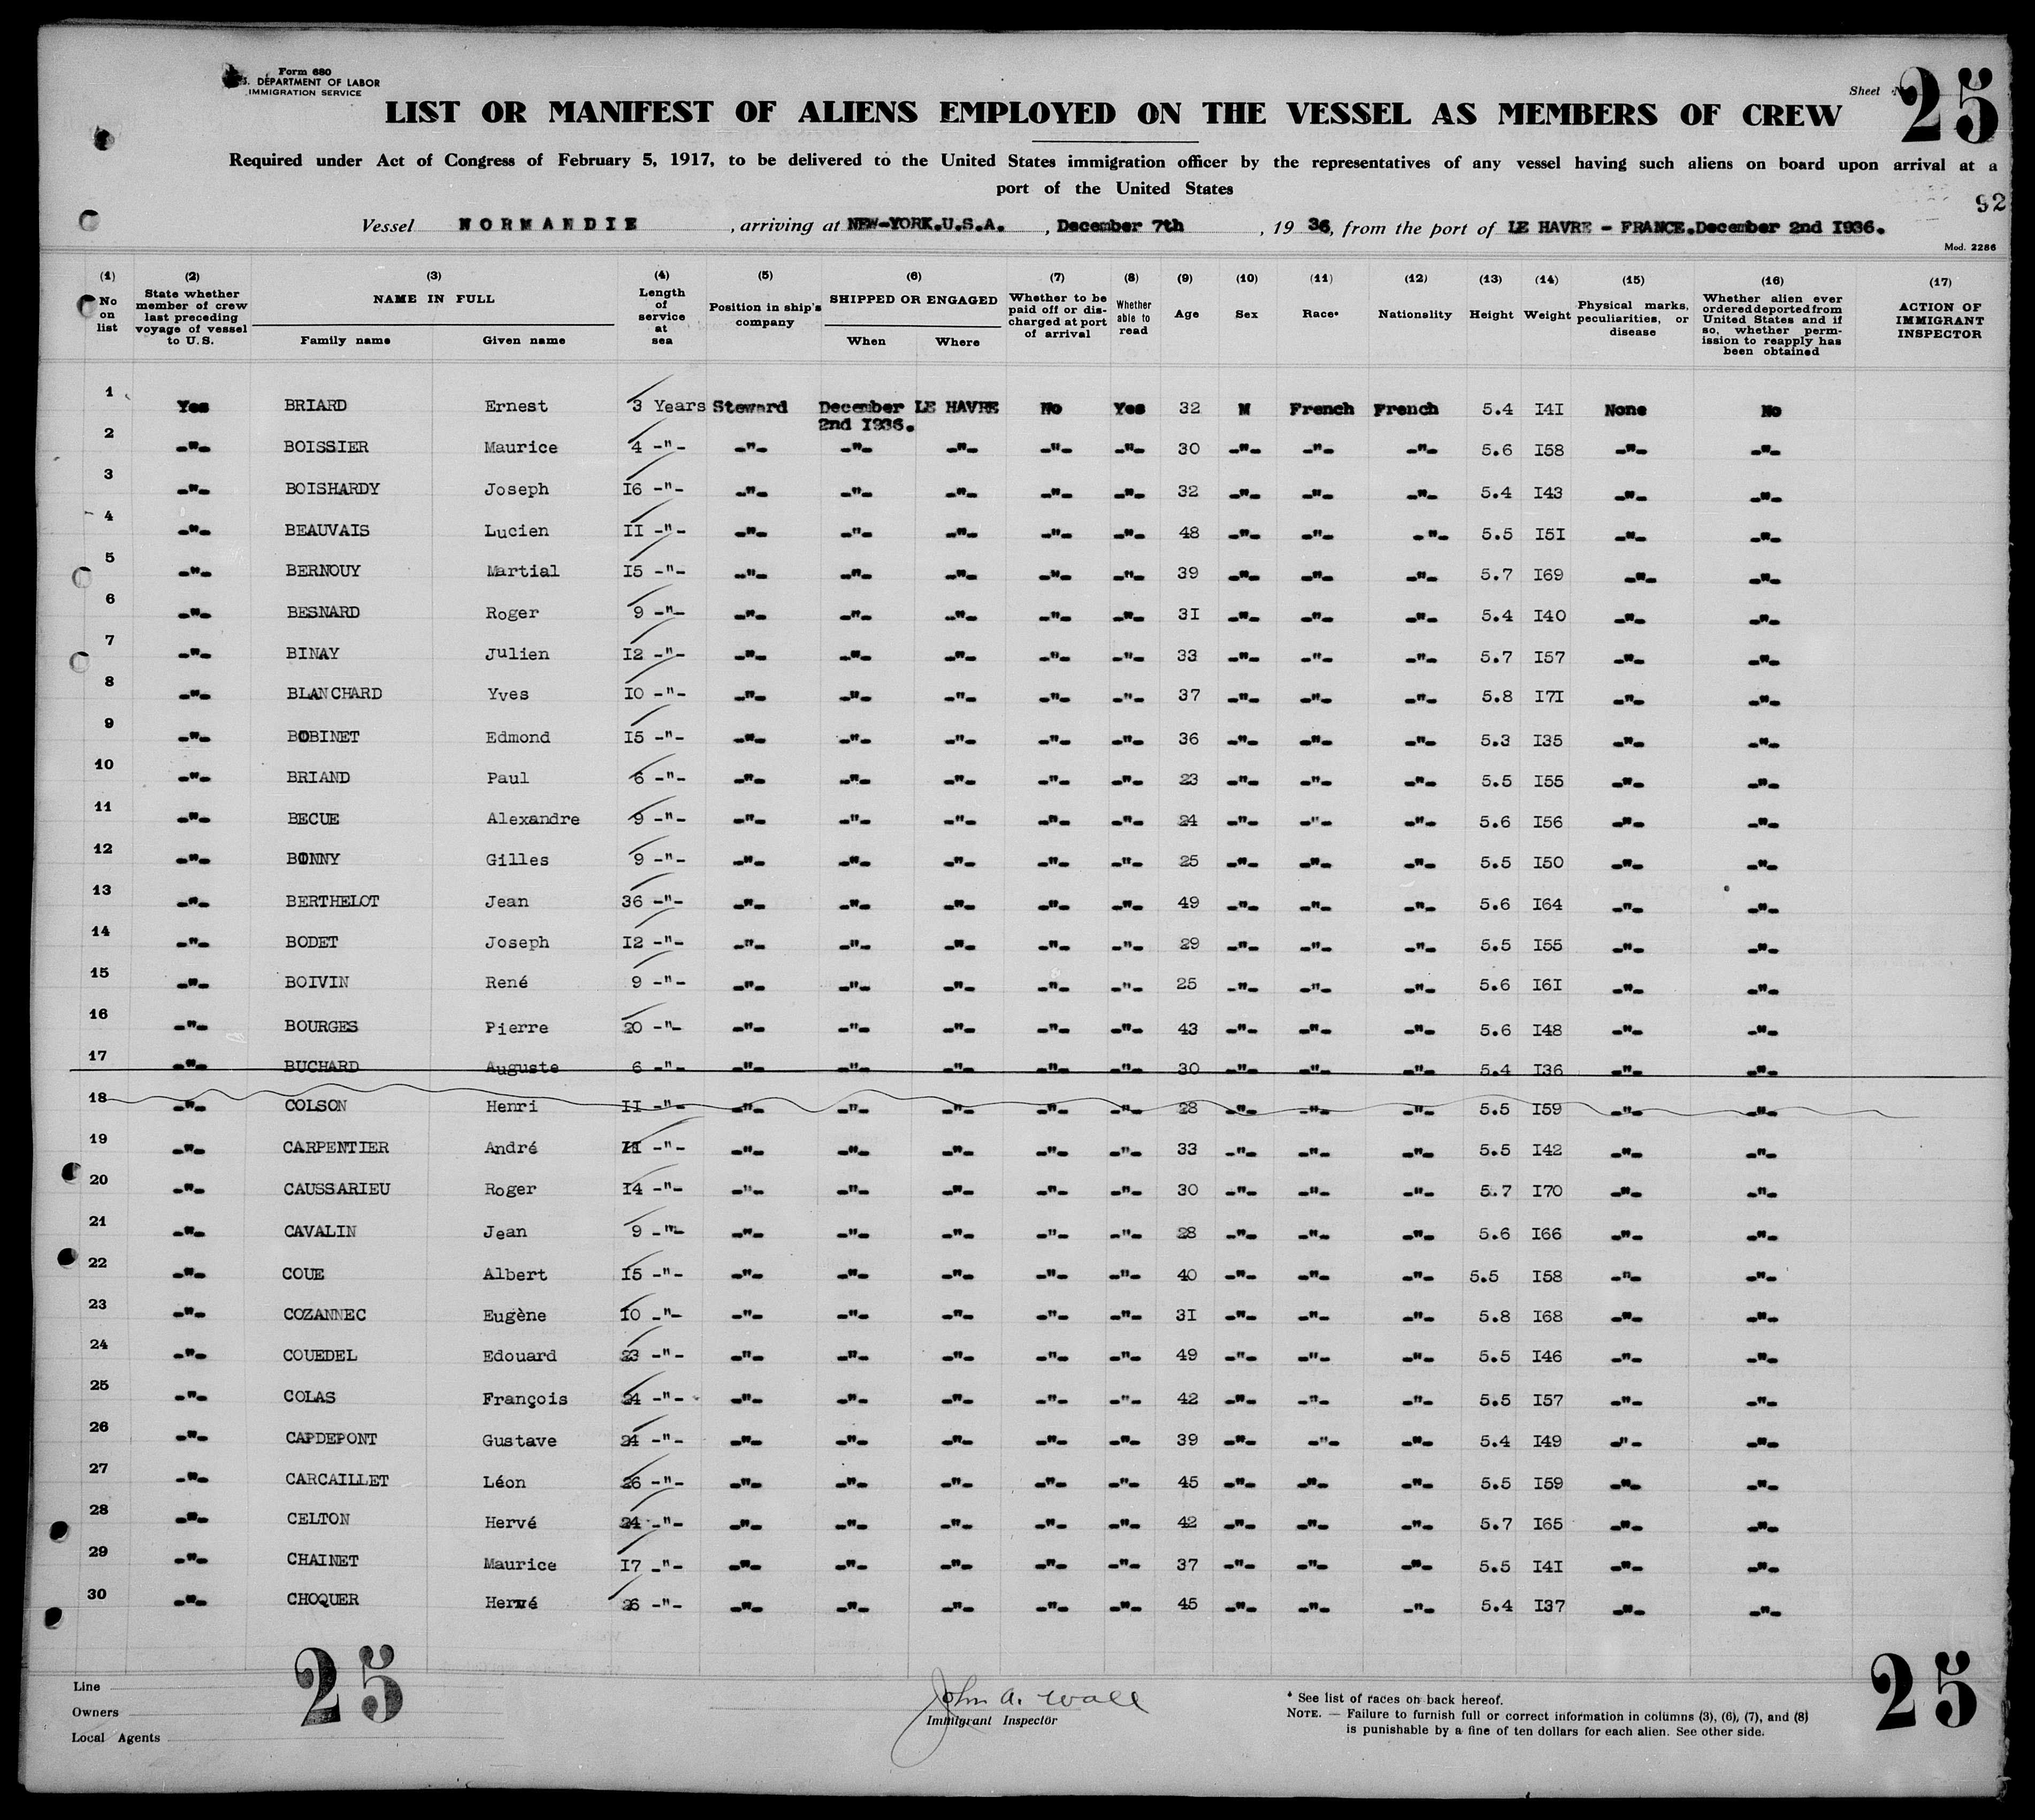 Form 680
S. DEPARTMENT OF LABOR
IMMIGRATION SERVICE
Sheet
25
LIST OR MANIFEST OF ALIENS EMPLOYED ON THE VESSEL AS MEMBERS OF CREW
Required under Act of Congress of February 5, 1917, to be delivered to the United States immigration officer by the representatives of any vessel having such aliens on board upon arrival at a
port of the United States
92
Vessel NORMANDIE , arriving at NEW-YORK.U.S.A. , December 7th , 19 36, from the port of LE HAVRE - FRANCE.December 2nd I936.
Mod. 2286
(1) (2) (3) (4) (5) (6) (7) (8) (9) (10) (11) (12) (13) (14) (15) (16) (17)
No on list
State whether member of crew last preceding voyage of vessel to U.S.
NAME IN FULL
Family name Given name
Length of service at sea
Position in ship's company
SHIPPED OR ENGAGED
When Where
Whether to be paid off or discharged at port of arrival
Whether able to read
Age
Sex
Race*
Nationality
Height
Weight
Physical marks, peculiarities, or disease
Whether alien ever ordered deported from United States and if so, whether permission to reapply has been obtained
ACTION OF IMMIGRANT INSPECTOR
1 Yes BRIARD Ernest 3 Years Steward December LE HAVRE No Yes 32 M French French 5.4 I4I None No
2nd I936.
2 -"- BOISSIER Maurice 4 -"- -"- -"- -"- -"- -"- 30 -"- -"- -"- 5.6 I58 -"- -"-
3 -"- BOISHARDY Joseph I6 -"- -"- -"- -"- -"- -"- 32 -"- -"- -"- 5.4 I43 -"- -"-
4 -"- BEAUVAIS Lucien II -"- -"- -"- -"- -"- -"- 48 -"- -"- -"- 5.5 I5I -"- -"-
5 -"- BERNOUY Martial I5 -"- -"- -"- -"- -"- -"- 39 -"- -"- -"- 5.7 I69 -"- -"-
6 -"- BESNARD Roger 9 -"- -"- -"- -"- -"- -"- 3I -"- -"- -"- 5.4 I40 -"- -"-
7 -"- BINAY Julien I2 -"- -"- -"- -"- -"- -"- 33 -"- -"- -"- 5.7 I57 -"- -"-
8 -"- BLANCHARD Yves I0 -"- -"- -"- -"- -"- -"- 37 -"- -"- -"- 5.8 I7I -"- -"-
9 -"- BOBINET Edmond I5 -"- -"- -"- -"- -"- -"- 36 -"- -"- -"- 5.3 I35 -"- -"-
10 -"- BRIAND Paul 6 -"- -"- -"- -"- -"- -"- 23 -"- -"- -"- 5.5 I55 -"- -"-
11 -"- BECUE Alexandre 9 -"- -"- -"- -"- -"- -"- 24 -"- -"- -"- 5.6 I56 -"- -"-
12 -"- BONNY Gilles 9 -"- -"- -"- -"- -"- -"- 25 -"- -"- -"- 5.5 I50 -"- -"-
13 -"- BERTHELOT Jean 36 -"- -"- -"- -"- -"- -"- 49 -"- -"- -"- 5.6 I64 -"- -"-
14 -"- BODET Joseph I2 -"- -"- -"- -"- -"- -"- 29 -"- -"- -"- 5.5 I55 -"- -"-
15 -"- BOIVIN René 9 -"- -"- -"- -"- -"- -"- 25 -"- -"- -"- 5.6 I6I -"- -"-
16 -"- BOURGES Pierre 20 -"- -"- -"- -"- -"- -"- 43 -"- -"- -"- 5.6 I48 -"- -"-
17 -"- BUCHARD Auguste 6 -"- -"- -"- -"- -"- -"- 30 -"- -"- -"- 5.4 I36 -"- -"-
18 -"- COLSON Henri II -"- -"- -"- -"- -"- -"- 28 -"- -"- -"- 5.5 I59 -"- -"-
19 -"- CARPENTIER André -"- -"- -"- -"- -"- -"- 33 -"- -"- -"- 5.5 I42 -"- -"-
20 -"- CAUSSARIEU Roger I4 -"- -"- -"- -"- -"- -"- 30 -"- -"- -"- 5.7 I70 -"- -"-
21 -"- CAVALIN Jean 9 -"- -"- -"- -"- -"- -"- 28 -"- -"- -"- 5.6 I66 -"- -"-
22 -"- COUE Albert I5 -"- -"- -"- -"- -"- -"- 40 -"- -"- -"- 5.5 I58 -"- -"-
23 -"- COZANNEC Eugène I0 -"- -"- -"- -"- -"- -"- 3I -"- -"- -"- 5.8 I68 -"- -"-
24 -"- COUEDEL Edouard 23 -"- -"- -"- -"- -"- -"- 49 -"- -"- -"- 5.5 I46 -"- -"-
25 -"- COLAS François 24 -"- -"- -"- -"- -"- -"- 42 -"- -"- -"- 5.5 I57 -"- -"-
26 -"- CAPDEPONT Gustave 24 -"- -"- -"- -"- -"- -"- 39 -"- -"- -"- 5.4 I49 -"- -"-
27 -"- CARCAILLET Léon 26 -"- -"- -"- -"- -"- -"- 45 -"- -"- -"- 5.5 I59 -"- -"-
28 -"- CELTON Hervé 24 -"- -"- -"- -"- -"- -"- 42 -"- -"- -"- 5.7 I65 -"- -"-
29 -"- CHAINET Maurice I7 -"- -"- -"- -"- -"- -"- 37 -"- -"- -"- 5.5 I4I -"- -"-
30 -"- CHOQUER Hervé 26 -"- -"- -"- -"- -"- -"- 45 -"- -"- -"- 5.4 I37 -"- -"-
25
25
Line
Owners
Local Agents
John A. Wall
Immigrant Inspector
* See list of races on back hereof.
NOTE. — Failure to furnish full or correct information in columns (3), (6), (7), and (8)
is punishable by a fine of ten dollars for each alien. See other side.